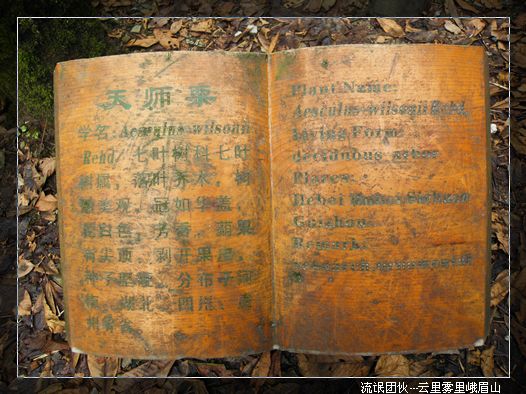 天师栗
学名:Aesculus wilsonii
Rehd 七叶树科七叶
树属,落叶乔木,树
姿美观,冠如华盖,
花白色,芳香,蒴果
有尖顶,剥开果
种子
湖北、四川、贵
州等省
Plant Name:
Aesculus wilsonii Rehd.
Living Form:
deciduous arbor
Places:
Hebei Hunan Sichuan
Guizhou
Remark:
流氓团伙---云里雾里峨眉山